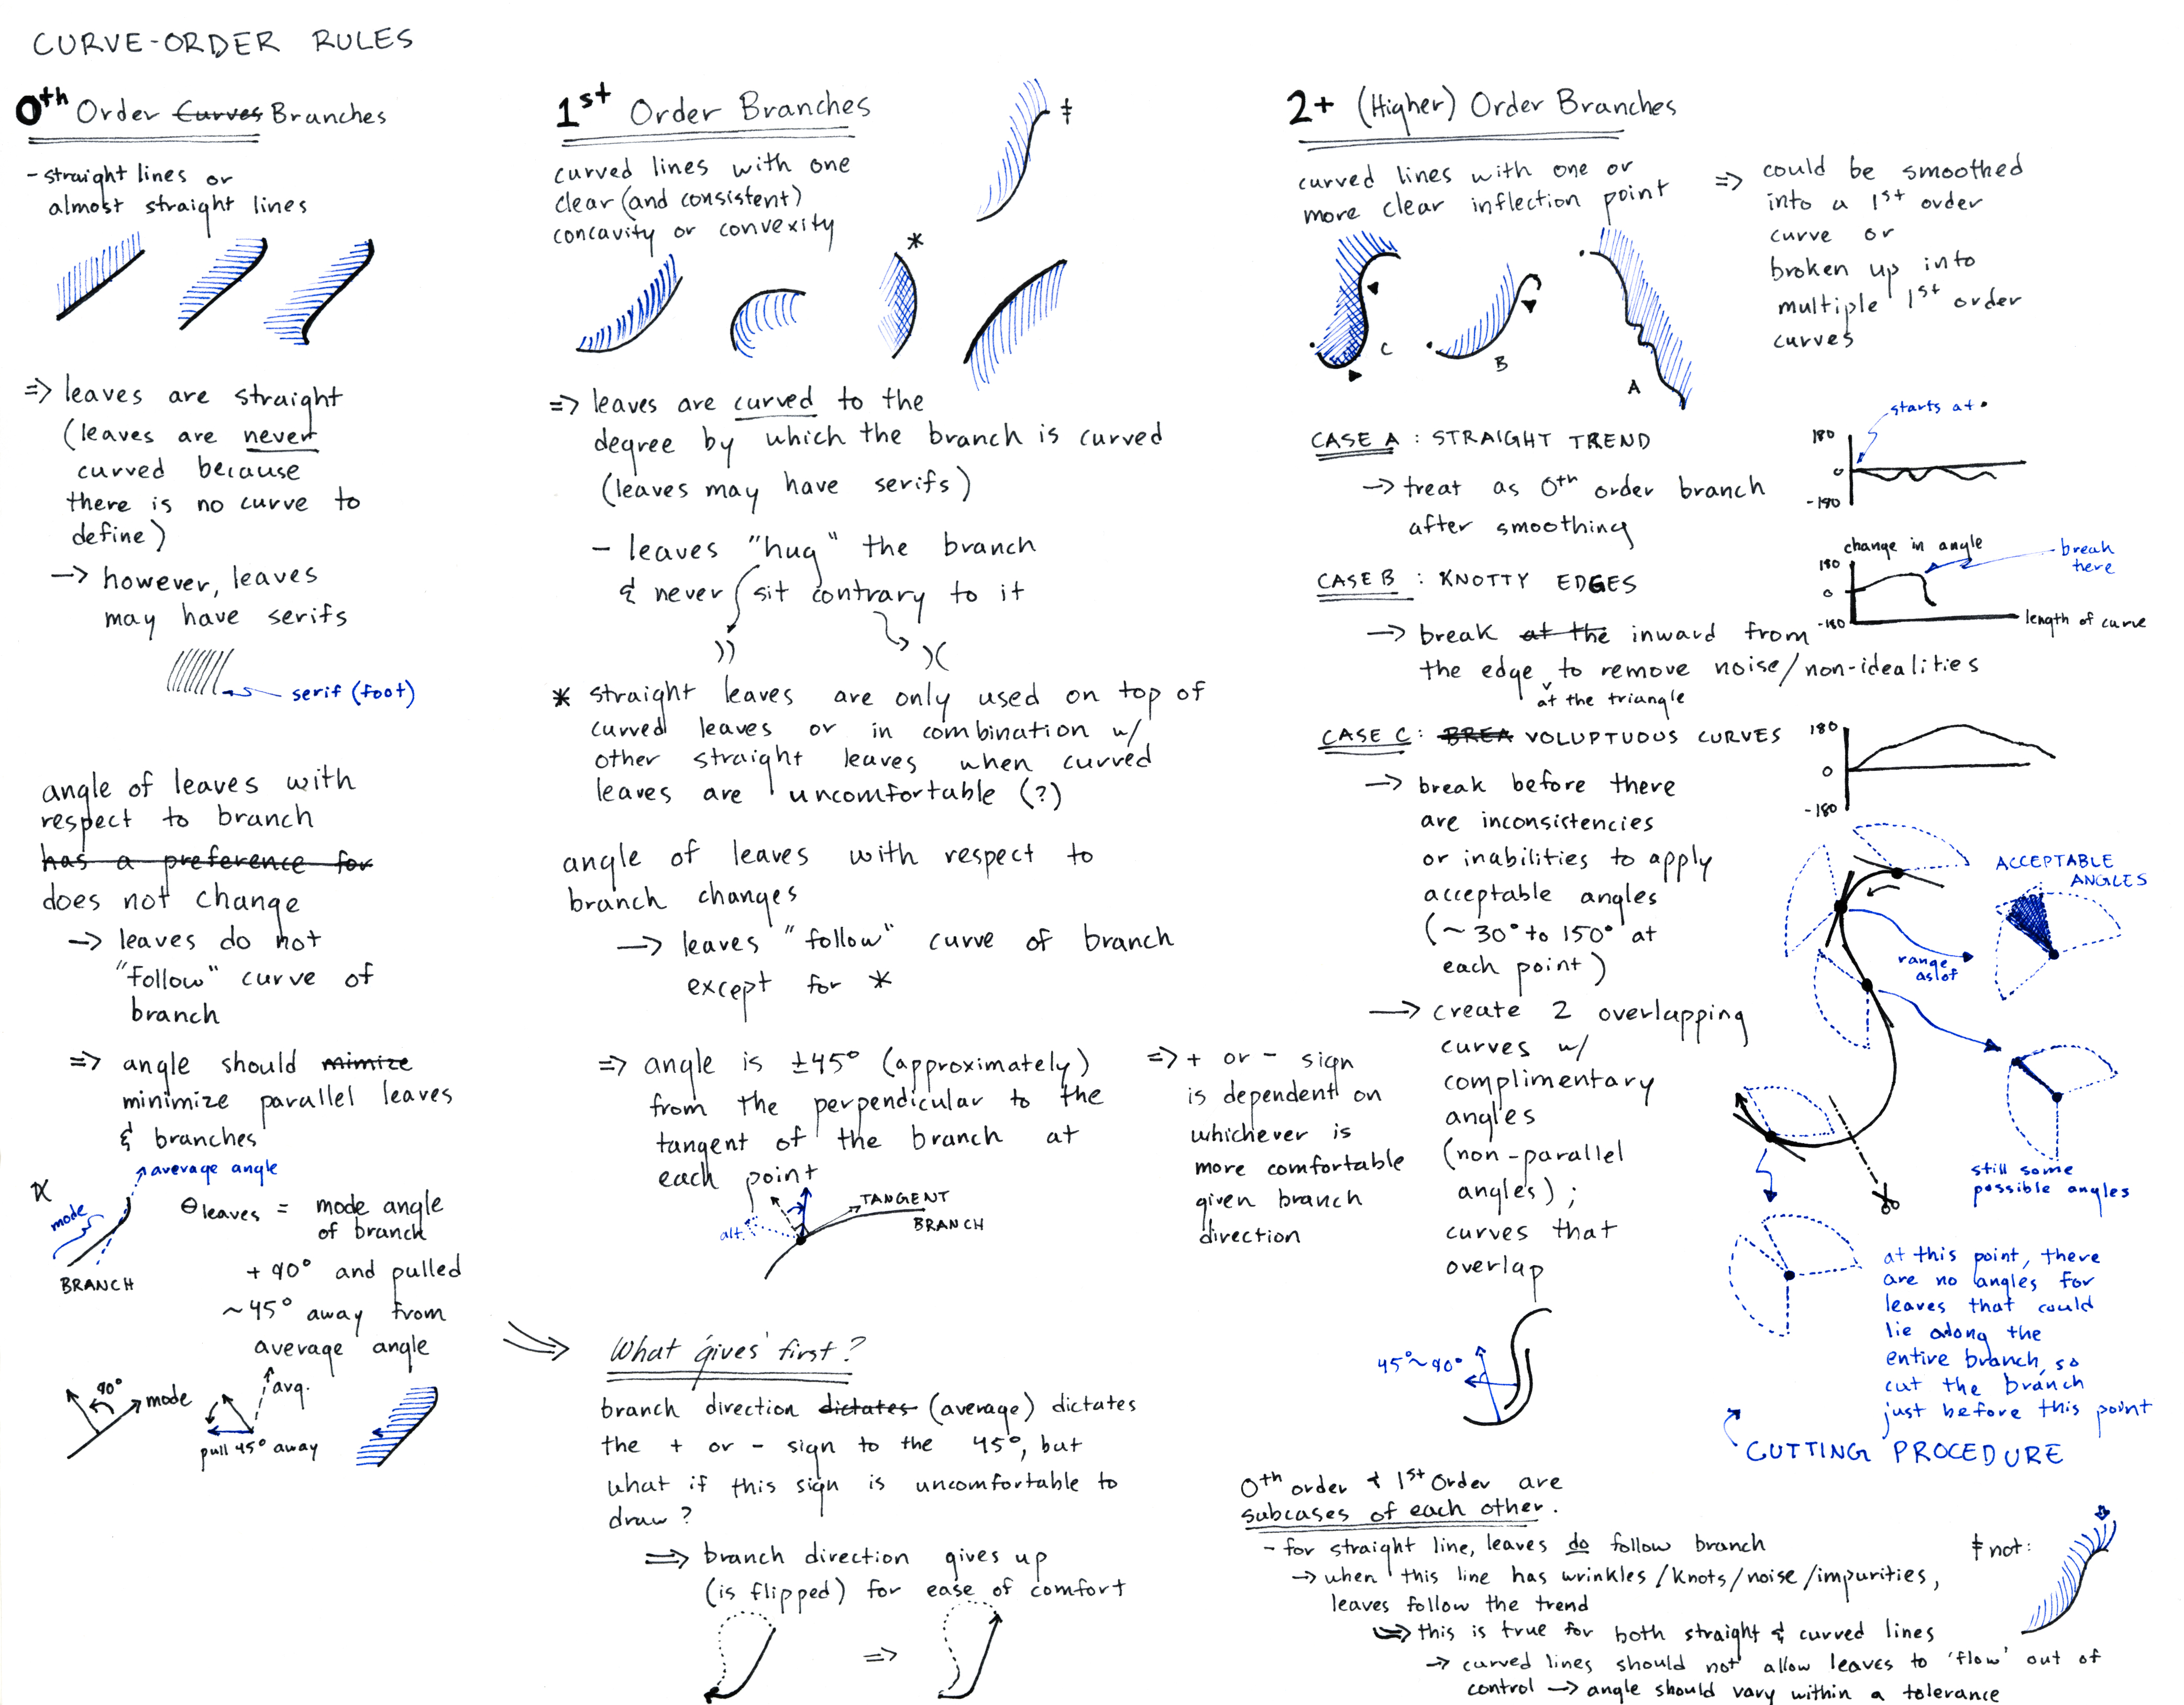 CURVE-ORDER RULES
0th Order Curves Branches
- straight lines or
almost straight lines
=> leaves are straight
(leaves are never
curved because
there is no curve to
define)
-> however, leaves
may have serifs
serif (foot)
angle of leaves with
respect to branch
has a preference for
does not change
-> leaves do not
"follow" curve of
branch
=> angle should mimize
minimize parallel leaves
& branches
average angle
mode
BRANCH
θ leaves = mode angle
of branch
+ 90° and pulled
~45° away from
average angle
90°
mode
avg.
pull 45° away
1st Order Branches
curved lines with one
clear (and consistent)
concavity or convexity
‡
*
=> leaves are curved to the
degree by which the branch is curved
(leaves may have serifs)
- leaves "hug" the branch
& never sit contrary to it
)) )(
* straight leaves are only used on top of
curved leaves or in combination w/
other straight leaves when curved
leaves are uncomfortable (?)
angle of leaves with respect to
branch changes
-> leaves "follow" curve of branch
except for *
=> angle is ±45° (approximately)
from the perpendicular to the
tangent of the branch at
each point
alt.
TANGENT
BRANCH
=> + or - sign
is dependent on
whichever is
more comfortable
given branch
direction
What 'gives' first?
branch direction dictates (average) dictates
the + or - sign to the 45°, but
what if this sign is uncomfortable to
draw?
=> branch direction gives up
(is flipped) for ease of comfort
=>
2+ (Higher) Order Branches
curved lines with one or
more clear inflection point
=> could be smoothed
into a 1st order
curve or
broken up into
multiple 1st order
curves
C
B
A
CASE A : STRAIGHT TREND
-> treat as 0th order branch
after smoothing
starts at •
180
0
-180
CASE B : KNOTTY EDGES
-> break at the inward from
the edge to remove noise/non-idealities
at the triangle
change in angle
180
0
-180
break
here
length of curve
CASE C : BREA VOLUPTUOUS CURVES
-> break before there
are inconsistencies
or inabilities to apply
acceptable angles
(~30° to 150° at
each point)
-> create 2 overlapping
curves w/
complimentary
angles
(non-parallel
angles);
curves that
overlap
180
0
-180
ACCEPTABLE
ANGLES
range
as of
still some
possible angles
at this point, there
are no angles for
leaves that could
lie along the
entire branch, so
cut the branch
just before this point
CUTTING PROCEDURE
45°~90°
0th order & 1st Order are
subcases of each other.
- for straight line, leaves do follow branch
-> when this line has wrinkles/knots/noise/impurities,
leaves follow the trend
=> this is true for both straight & curved lines
-> curved lines should not allow leaves to 'flow' out of
control -> angle should vary within a tolerance
‡ not: